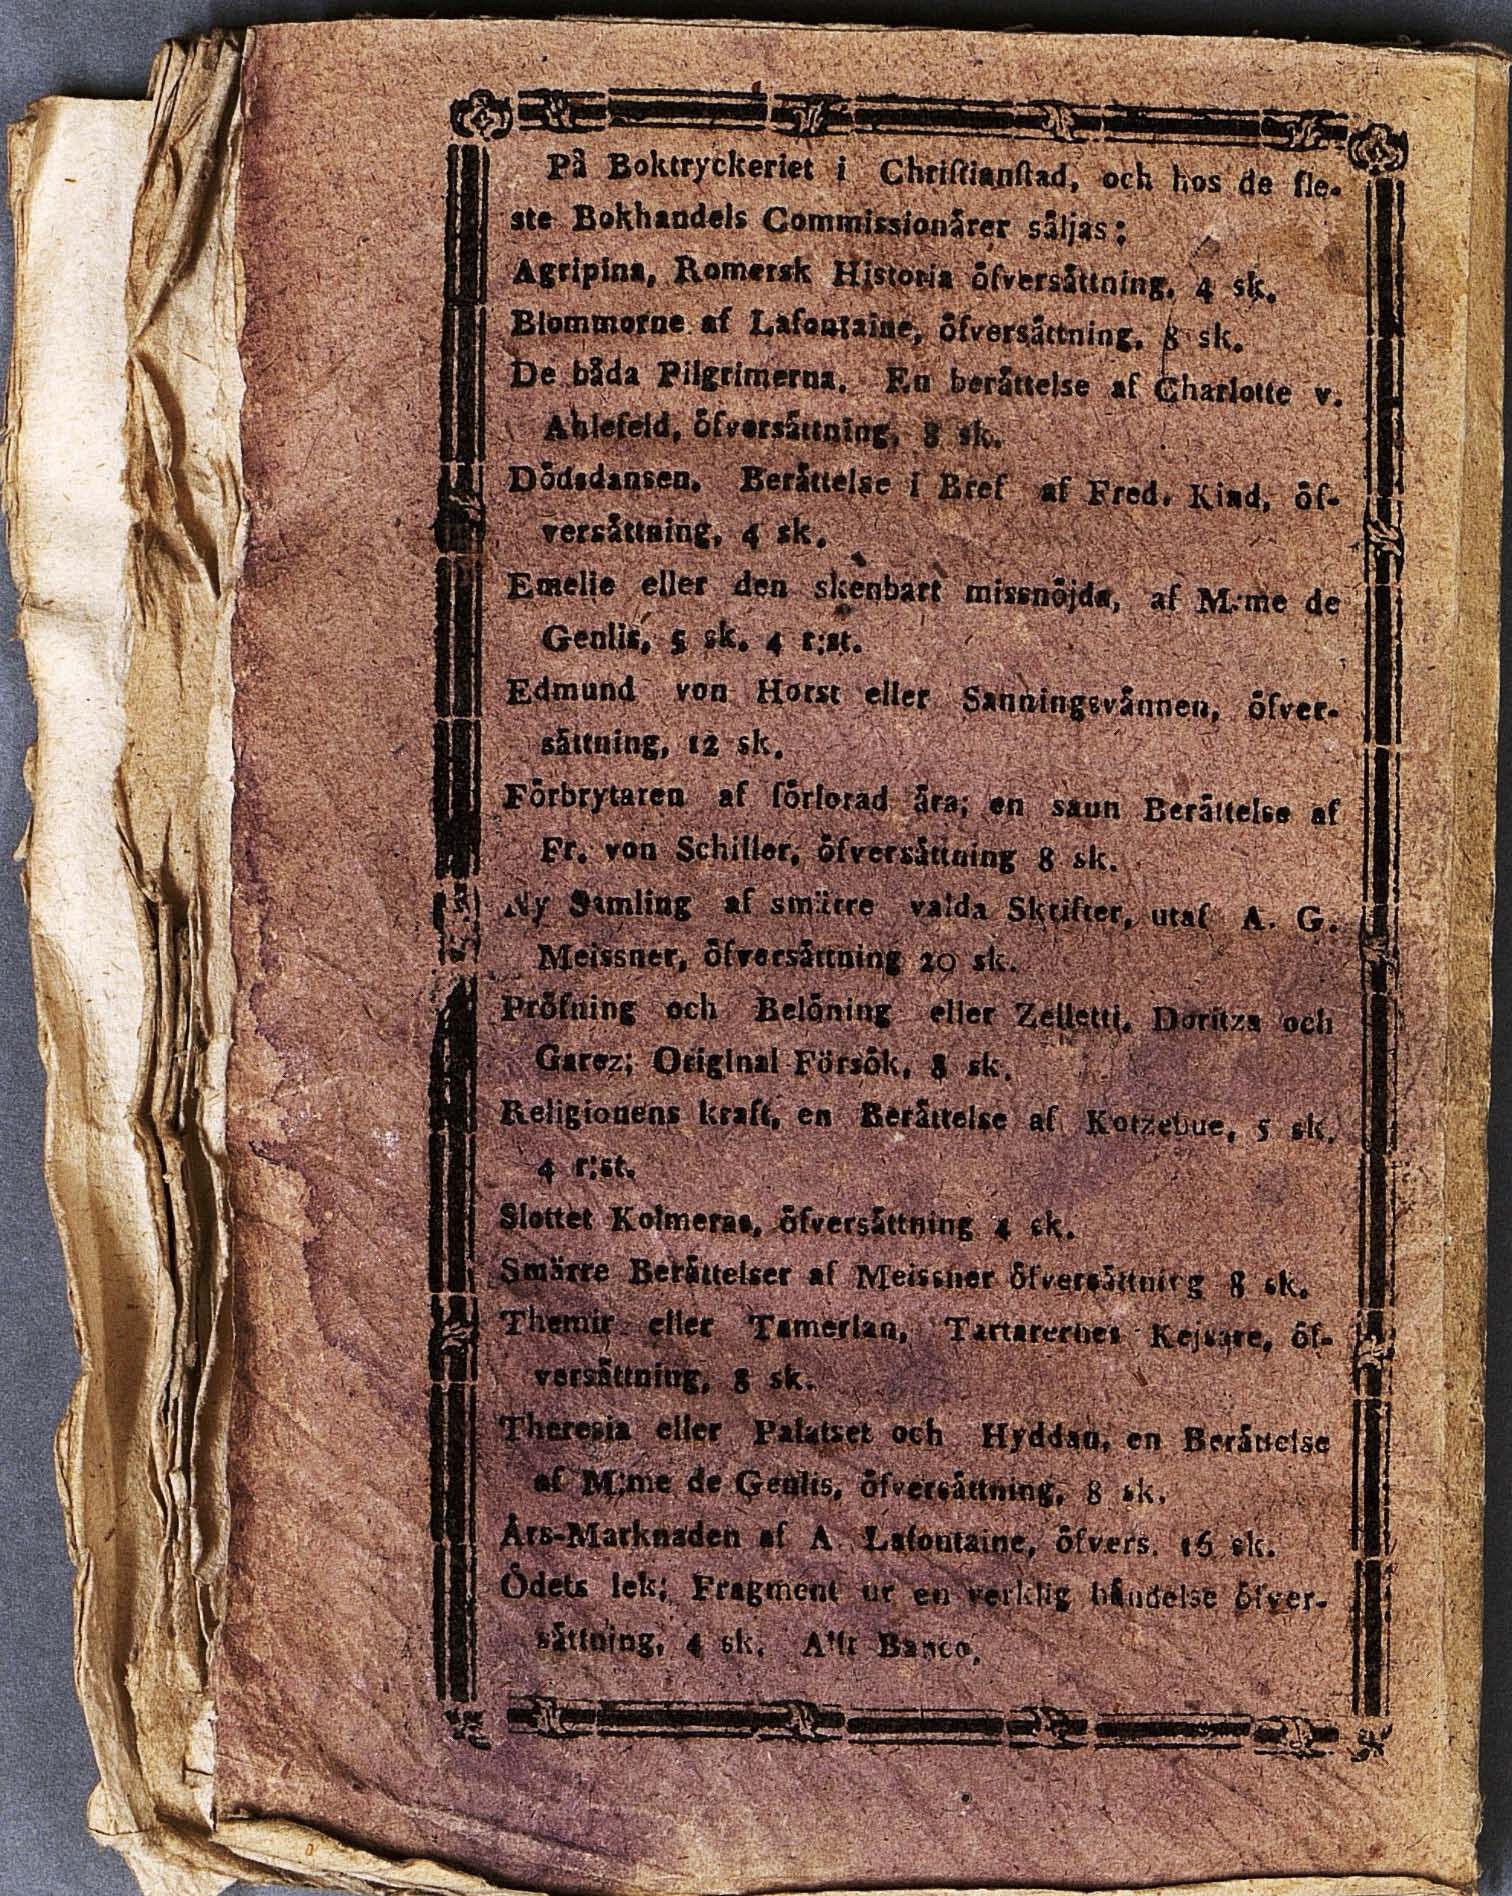 På Boktryckeriet i Chriſtianſtad, och hos de fle-
ste Bokhandels Commissionårer såljas:
Agripina, Romersk Historia öfversåttning, 4 sk.
Blommorne af Lafontaine, öfversåttning, 8 sk.
De båda Pilgrimerna. En beråttelse af Charlotte v.
Ahlefeld, öfversåttning, 8 sk.
Dödsdansen. Beråttelse i Bref af Fred. Kind, öf-
versåttning, 4 sk.
Emelie eller den skenbart missnöjda, af M:me de
Genlis, 5 sk. 4 r:st.
Edmund von Horst eller Sanningsvånnen, öfver-
såttning, 12 sk.
Förbrytaren af förlorad åra; en sann Beråttelse af
Fr. von Schiller, öfversåttning 8 sk.
Ny Samling af smärre valda Skrifter, utaf A. G.
Meissner, öfversåttning 20 sk.
Pröfning och Belöning eller Zelletti, Doritza och
Garez; Original Försök, 8 sk.
Religionens kraft, en Beråttelse af Kotzebue, 5 sk.
4 r:st.
Slottet Kolmeras, öfversåttning 4 sk.
Smärre Beråttelser af Meissner öfversåttning 8 sk.
Themir eller Tamerlan, Tartarernes Kejsare, öf-
versåttning, 8 sk.
Theresia eller Palatset och Hyddan, en Beråttelse
af M:me de Genlis, öfversåttning, 8 sk.
Års-Marknaden af A. Lafontaine, öfvers. 16 sk.
Ödets lek; Fragment ur en verklig håndelse öfver-
såttning, 4 sk. Allt Banco.